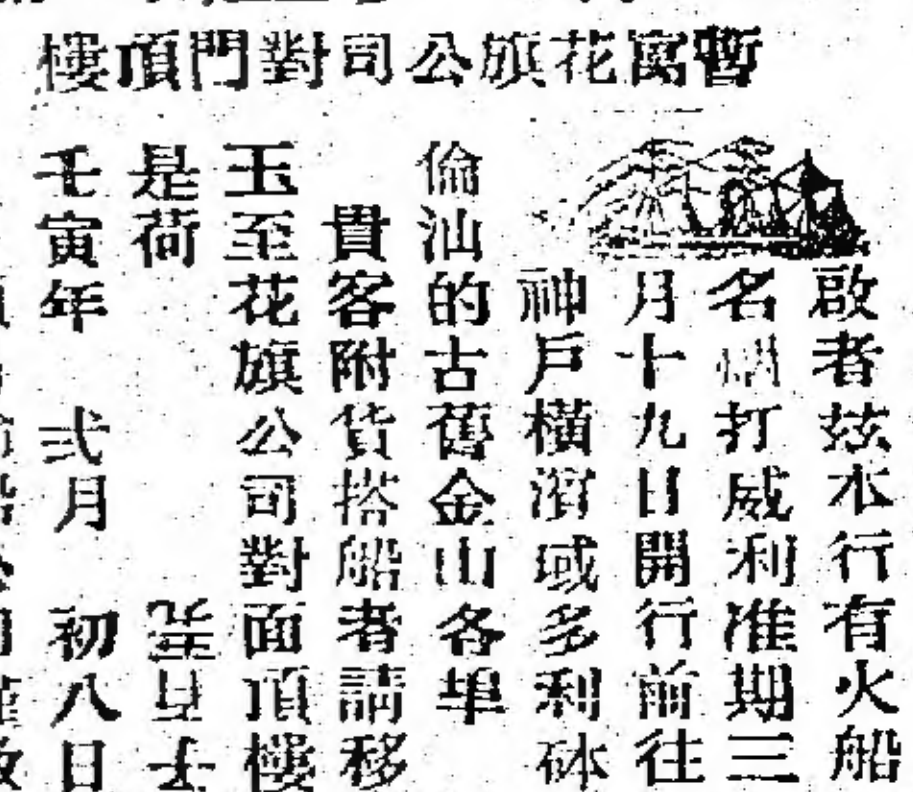 暫寓花旗公司對門頂樓
啟者茲本行有火船
名打威利准期三
月十九日開行前往
神戶橫濱域多利砵
倫汕的古舊金山各埠
貴客附貨搭船者請移
玉至花旗公司對面頂樓
是荷
壬寅年 弍月 初八日